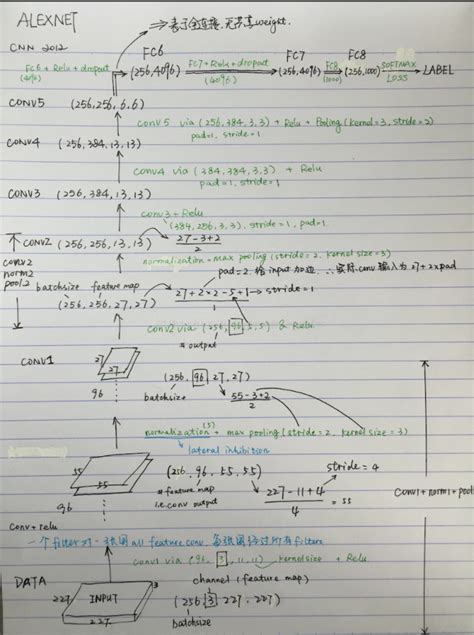 ALEXNET
⇒表示全连接,无共享weight.
CNN 2012
FC6 FC7 FC8
FC6 + Relu + dropout → (256,4096) FC7 + Relu + dropout → (256,4096) FC8 → (256,1000) SOFTMAX → LABEL
(4096) (4096) (1000) LOSS
CONV5 (256,256,6,6)
conv5 via (256,384,3,3) + Relu + Pooling (kernel=3, stride=2)
pad=1, stride=1
CONV4 (256,384,13,13)
conv4 via (384,384,3,3) + Relu
pad=1, stride=1
CONV3 (256,384,13,13)
conv3 + Relu
(384,256,3,3), stride=1, pad=1.
CONV2 (256,256,13,13) 27-3+2
2
conv2 normalization + max pooling (stride=2, kernel size=3)
norm2 pad=2. 给input加边, ∴实际conv输入为27+2xpad
pool2 batchsize feature map
(256,256,27,27) 27+2×2-5+1 → stride=1
1
conv2 via (256,96,5,5) & Relu
# output
CONV1
27
27
(256,96,27,27)
96 batchsize 55-3+2
2
normalization (5) + max pooling (stride=2, kernel size=3)
lateral inhibition
55
55
(256,96,55,55) stride=4
# feature map
96 i.e. conv output 227-11+4 = 55
4
conv1 + norm1 + pool
Conv + relu
一个filter对一张图all feature conv,每张图经过所有filters
conv1 via (96,3,11,11) kernelsize + Relu
DATA channel (feature map)
3
227 INPUT (256,3,227,227)
227 batchsize